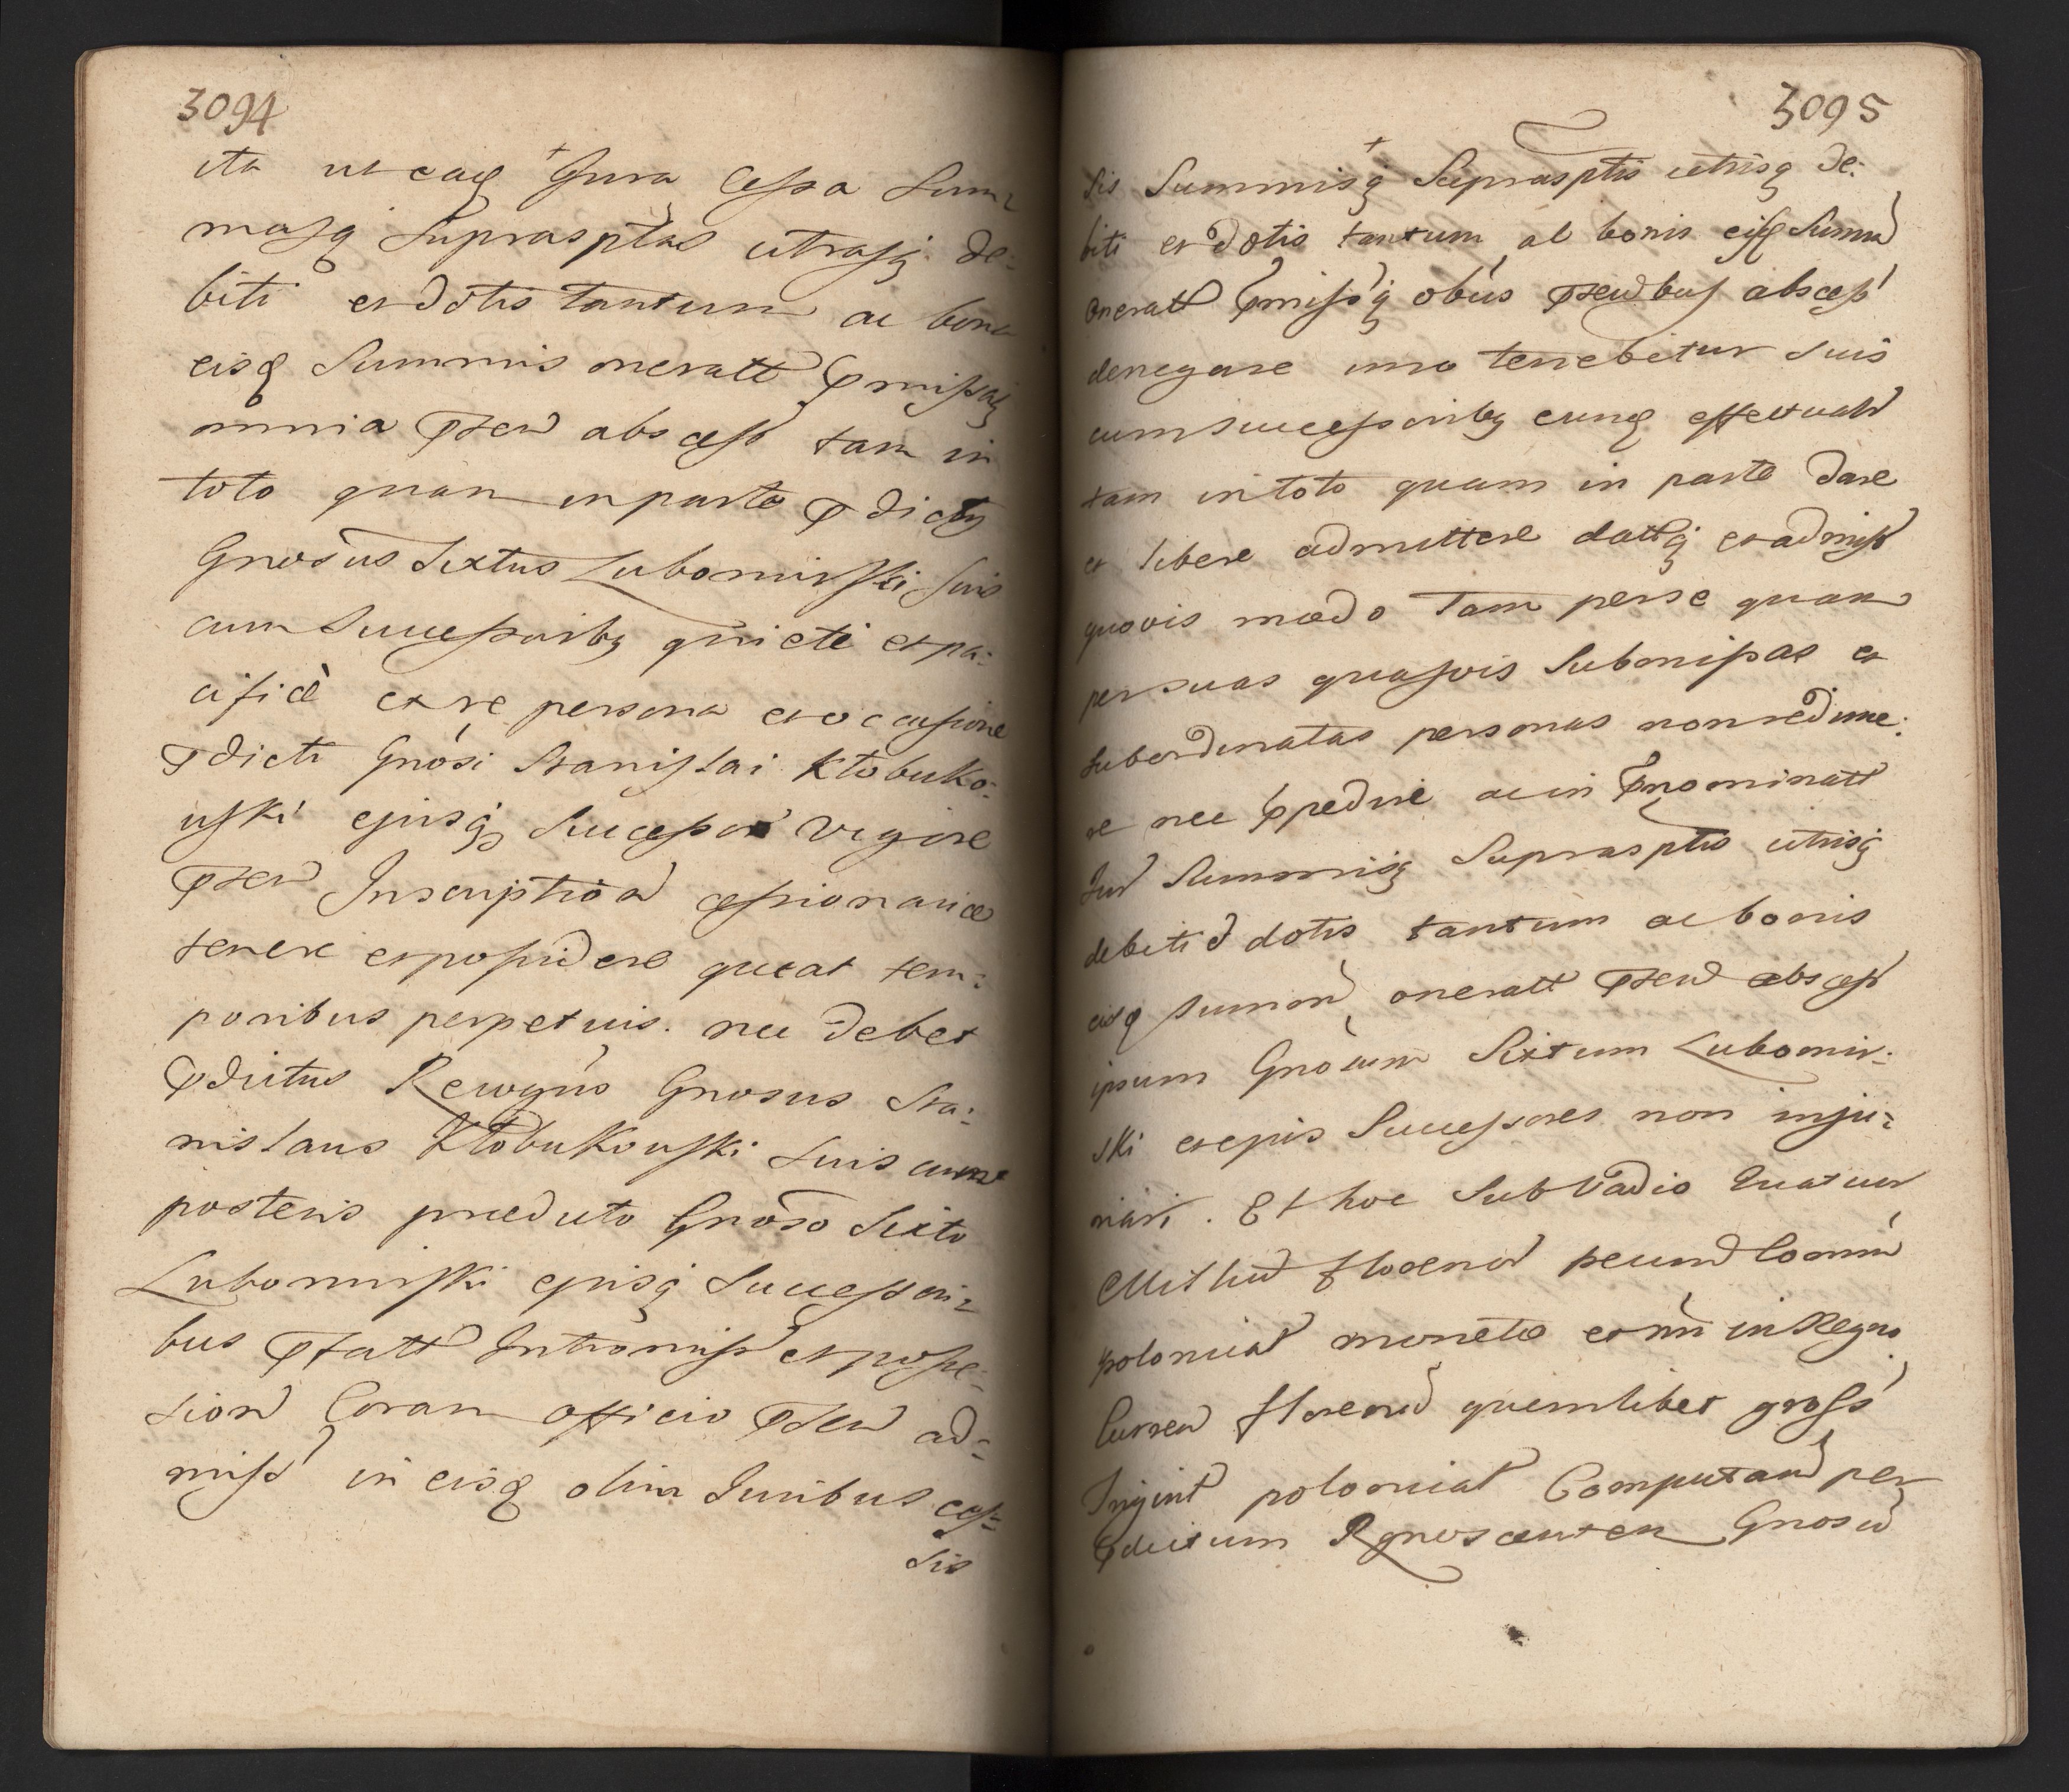 3094
ita ut eaq Jura Cessa Sum
masq Suprasptas utrasq de:
biti et dotis tantum ac bona
eisq Summis oneratt pmissaq
omnia psen abscess tam in
toto quam in parte pdictus
Gnosus Sixtus Lubomirski suis
cum Successoribq quiete et pa:
cifice ex re persona et occasione
pdicti Gnosi Stanislai Kłobuko:
wski ejusq Successor vigore
psen Inscription cessionariae
tenere et possidere queat tem:
poribus perpetuis. nec debet
pdictus Recognos Gnosus Sta:
nislaus Kłobukowski suis cum
posteris praedicto Gnoso Sixto
Lubomirski ejusq Successori:
bus pfatt Intromiss et posse:
sion Coram officio psen ad:
miss in eisq olim Juribus ces:
sis
3095
sis Summisq Suprasptis utrisq de:
biti et dotis tantum ac bonis eisq Summ
oneratt pmissq obus psendbus abscess
denegare imo tenebitur suis
cum Successoribq eunq effectuald
tam in toto quam in parte dare
et libere admittere dattq et admiss
quovis modo tam per se quam
per suas quasvis Submissas et
subordinatas personas non redime:
re nec ppedire ac in pnominatt
Jur Summisq Suprasptis utrisq
debiti d dotis tantum ac bonis
eisq summ oneratt psen abscess
ipsum Gnosum Sixtum Lubomir:
ski et ejus Successores non inju:
riari. Et hoc Sub Vadio Quatuor
Milliu florenor pecund Comun
polonical monetae et nri in Regno
Curren florenu quemlibet gross
Trigint polonical Computand per
pdictum Rgnoscenten Gnosu